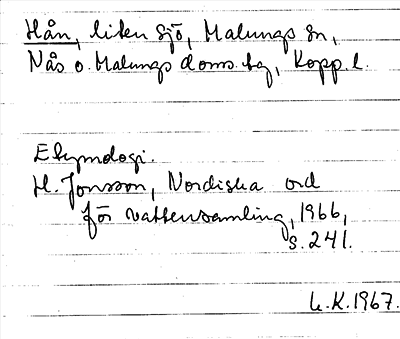 Hån, liten sjö, Malungs sn,
Nås o. Malungs doms.hg, Kopp.l.
Etymologi.
H. Jonsson, Nordiska ord
för vattensamling, 1966,
s. 241.
L.K. 1967.